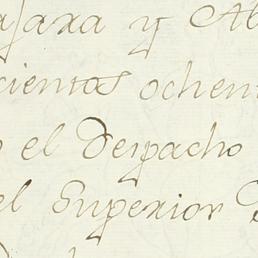 ajara y Ab
cientos ochen
o el Despacho
el Superior